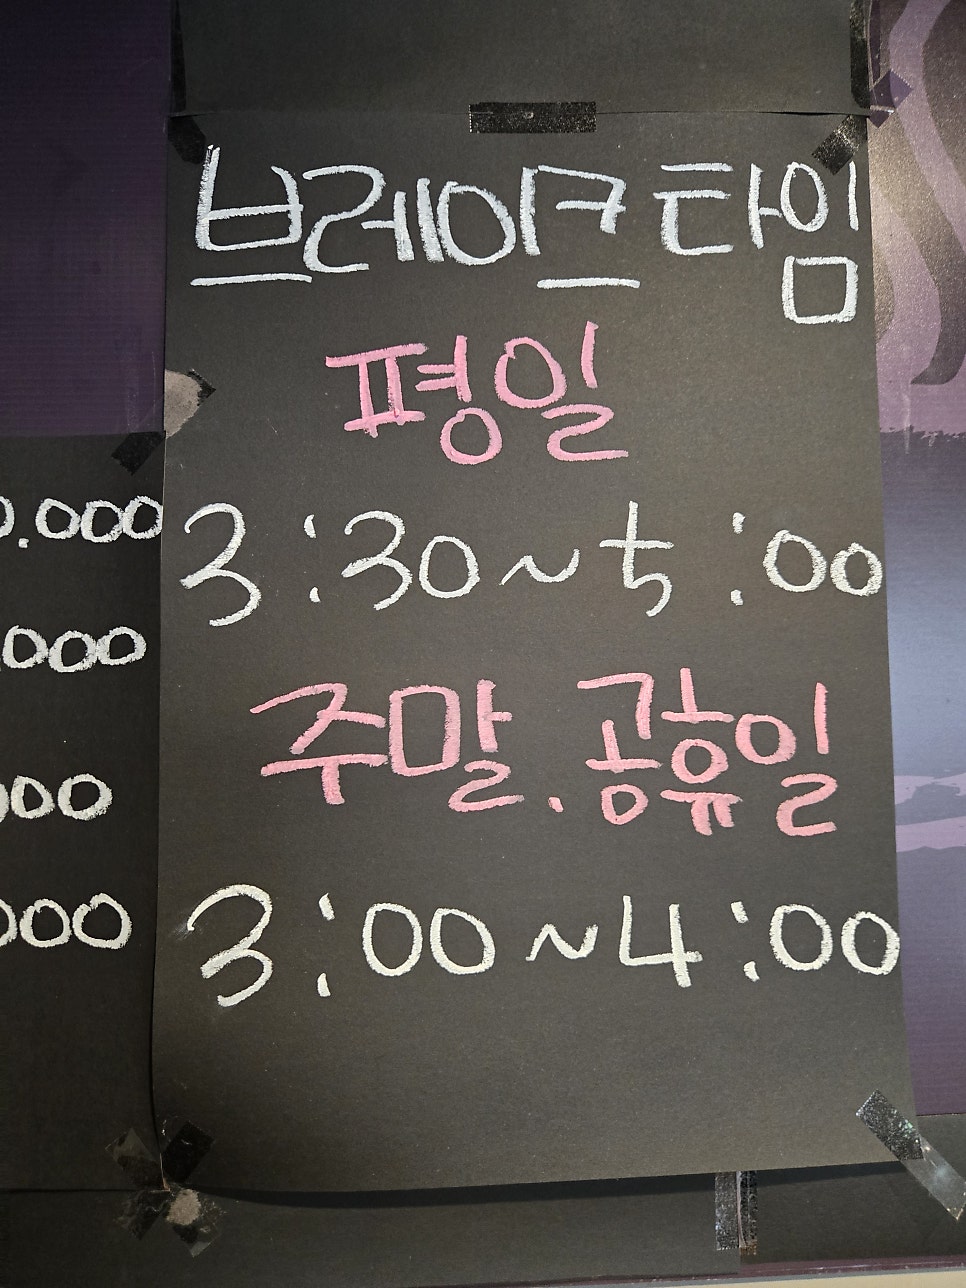 브레이크 타임
평일
3:30~5:00
주말.공휴일
3:00~4:00
.000
000
000